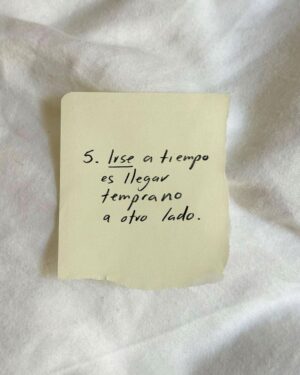 5. Irse a tiempo
es llegar
temprano
a otro lado.